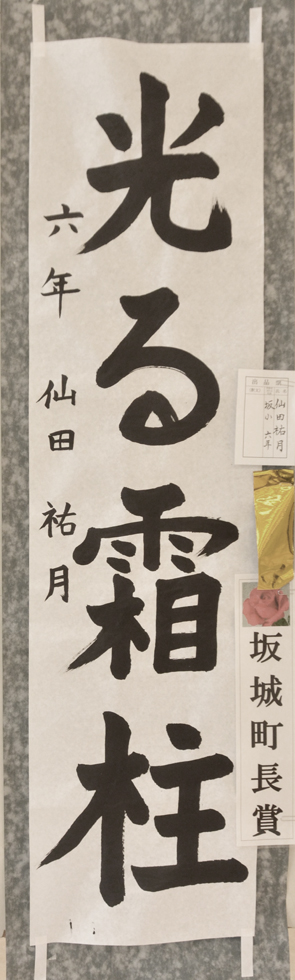 光る霜柱
六年 仙田 祐月
仙田祐月
坂小 六年
坂城町長賞